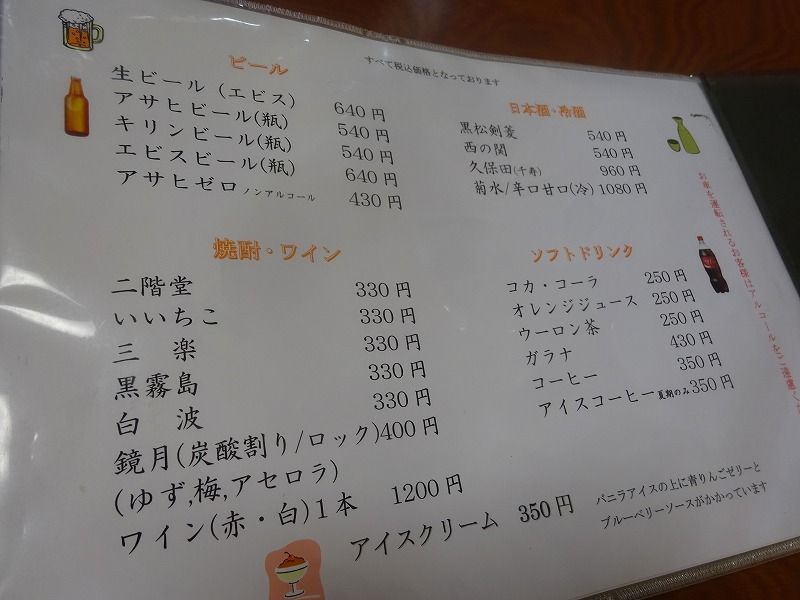 すべて税込価格となっております
ビール
生ビール (エビス) 640円
アサヒビール(瓶) 540円
キリンビール(瓶) 540円
エビスビール(瓶) 640円
アサヒゼロ ノンアルコール 430円
日本酒・冷酒
黒松剣菱 540円
西の関 540円
久保田(千寿) 960円
菊水/辛口甘口(冷) 1080円
焼酎・ワイン
二階堂 330円
いいちこ 330円
三 楽 330円
黒霧島 330円
白 波 330円
鏡月(炭酸割り/ロック)400円
(ゆず,梅,アセロラ)
ワイン(赤・白)1本 1200円
ソフトドリンク
コカ・コーラ 250円
オレンジジュース 250円
ウーロン茶 250円
ガラナ 430円
コーヒー 350円
アイスコーヒー夏期のみ350円
アイスクリーム 350円
バニラアイスの上に青りんごゼリーと
ブルーベリーソースがかかっています
お車を運転されるお客様はアルコールをご遠慮くだ